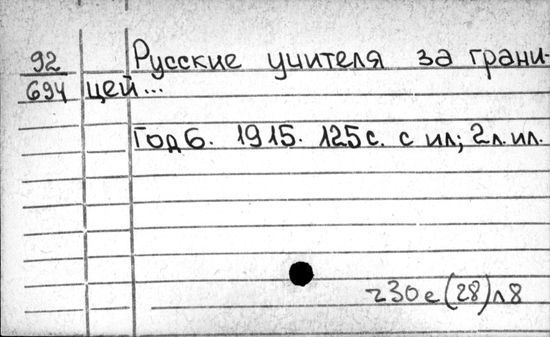 92
694
Русские учителя за грани-
цей...
Год 6. 1915. 125 с. с ил; 2 л. ил.
г30е(28)л8